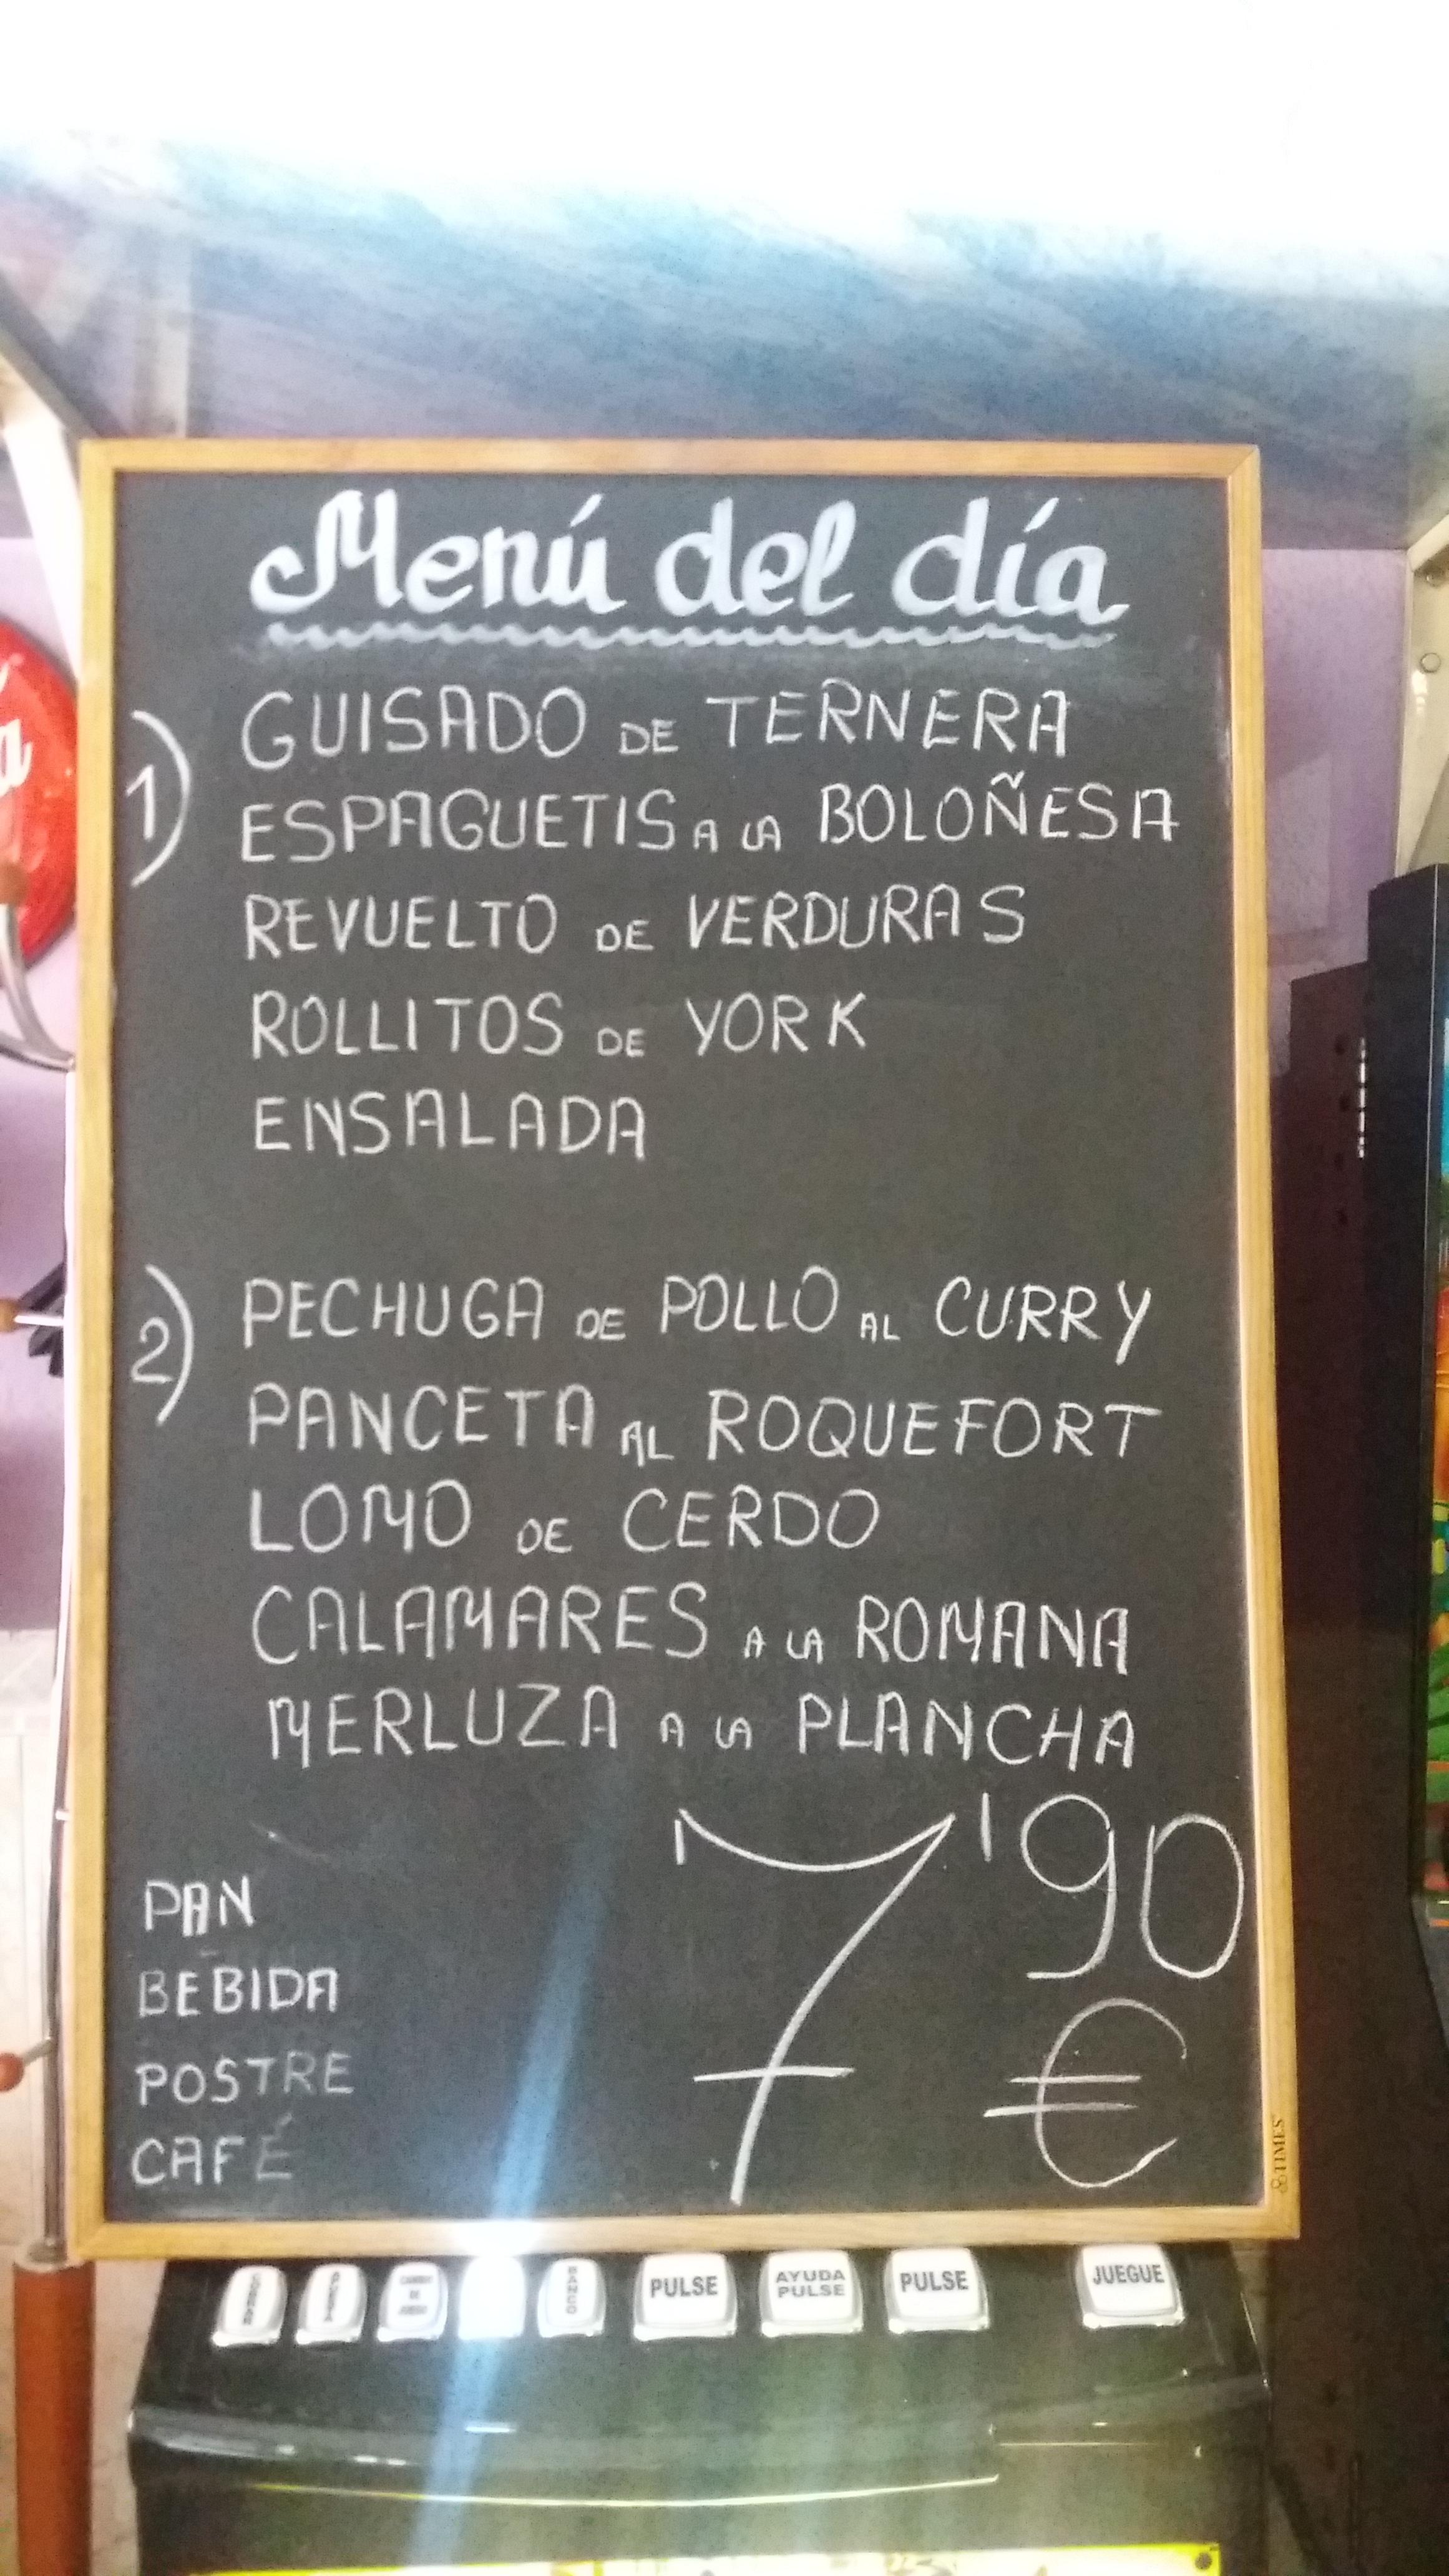 Menú del día
1)
GUISADO DE TERNERA
ESPAGUETIS A LA BOLOÑESA
REVUELTO DE VERDURAS
ROLLITOS DE YORK
ENSALADA
2)
PECHUGA DE POLLO AL CURRY
PANCETA AL ROQUEFORT
LOMO DE CERDO
CALAMARES A LA ROMANA
MERLUZA A LA PLANCHA
PAN
BEBIDA
POSTRE
CAFÉ
7'90
€
TIMES
BANCO
PULSE
AYUDA
PULSE
PULSE
JUEGUE